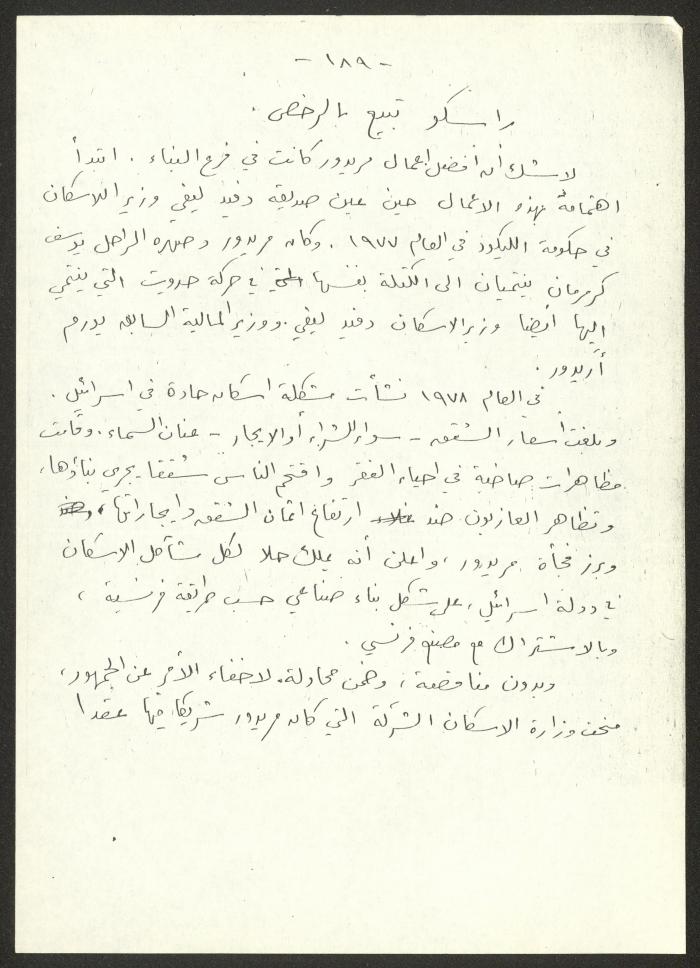 - ١٨٩ -
راسكو تبيع بالرخص .
لا شك أن أفضل اعمال مريدور كانت في فرع البناء . ابتدأ
اهتمامه بهذه الاعمال حين عين صديقه دفيد ليفي وزير الاسكان
في حكومة الليكود في العام ١٩٧٧ . وكان مريدور وصهره الراحل يوسف
كرمرمان ينتميان الى الكتلة بنفسها في حركة حيروت التي ينتمي
اليها أيضا وزير الاسكان دفيد ليفي . ووزير المالية السابق يورم
أريدور .
في العام ١٩٧٨ نشأت مشكلة اسكان حادة في اسرائيل .
وبلغت أسعار الشقق - سواء للشراء أو الايجار - عنان السماء . وقامت
مظاهرات صاخبة في احياء الفقر واقتحم الناس شققا يجري بناؤها ،
وتظاهر العازبون ضد ارتفاع اثمان الشقق وايجاراتها ،
وبرز فجأة مريدور ، واعلن أنه يملك حلا لكل مشاكل الاسكان
في دولة اسرائيل ، على شكل بناء صناعي حسب طريقة فرنسية ،
وبالاشتراك مع مصنع فرنسي .
وبدون مناقصة ، وضمن محاولة لاخفاء الأمر عن الجمهور ،
منحت وزارة الاسكان الشركة التي كان مريدور شريكا فيها عقدا